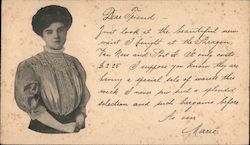 Dear Friend -
Just look at the beautiful new
waist I bought at the Paragon,
Van Ness and Post St. It only costs
$2.25 I suppose you know they are
having a special sale of waists this
week I never saw such a splendid
selection and such bargains before
As ever
Marie